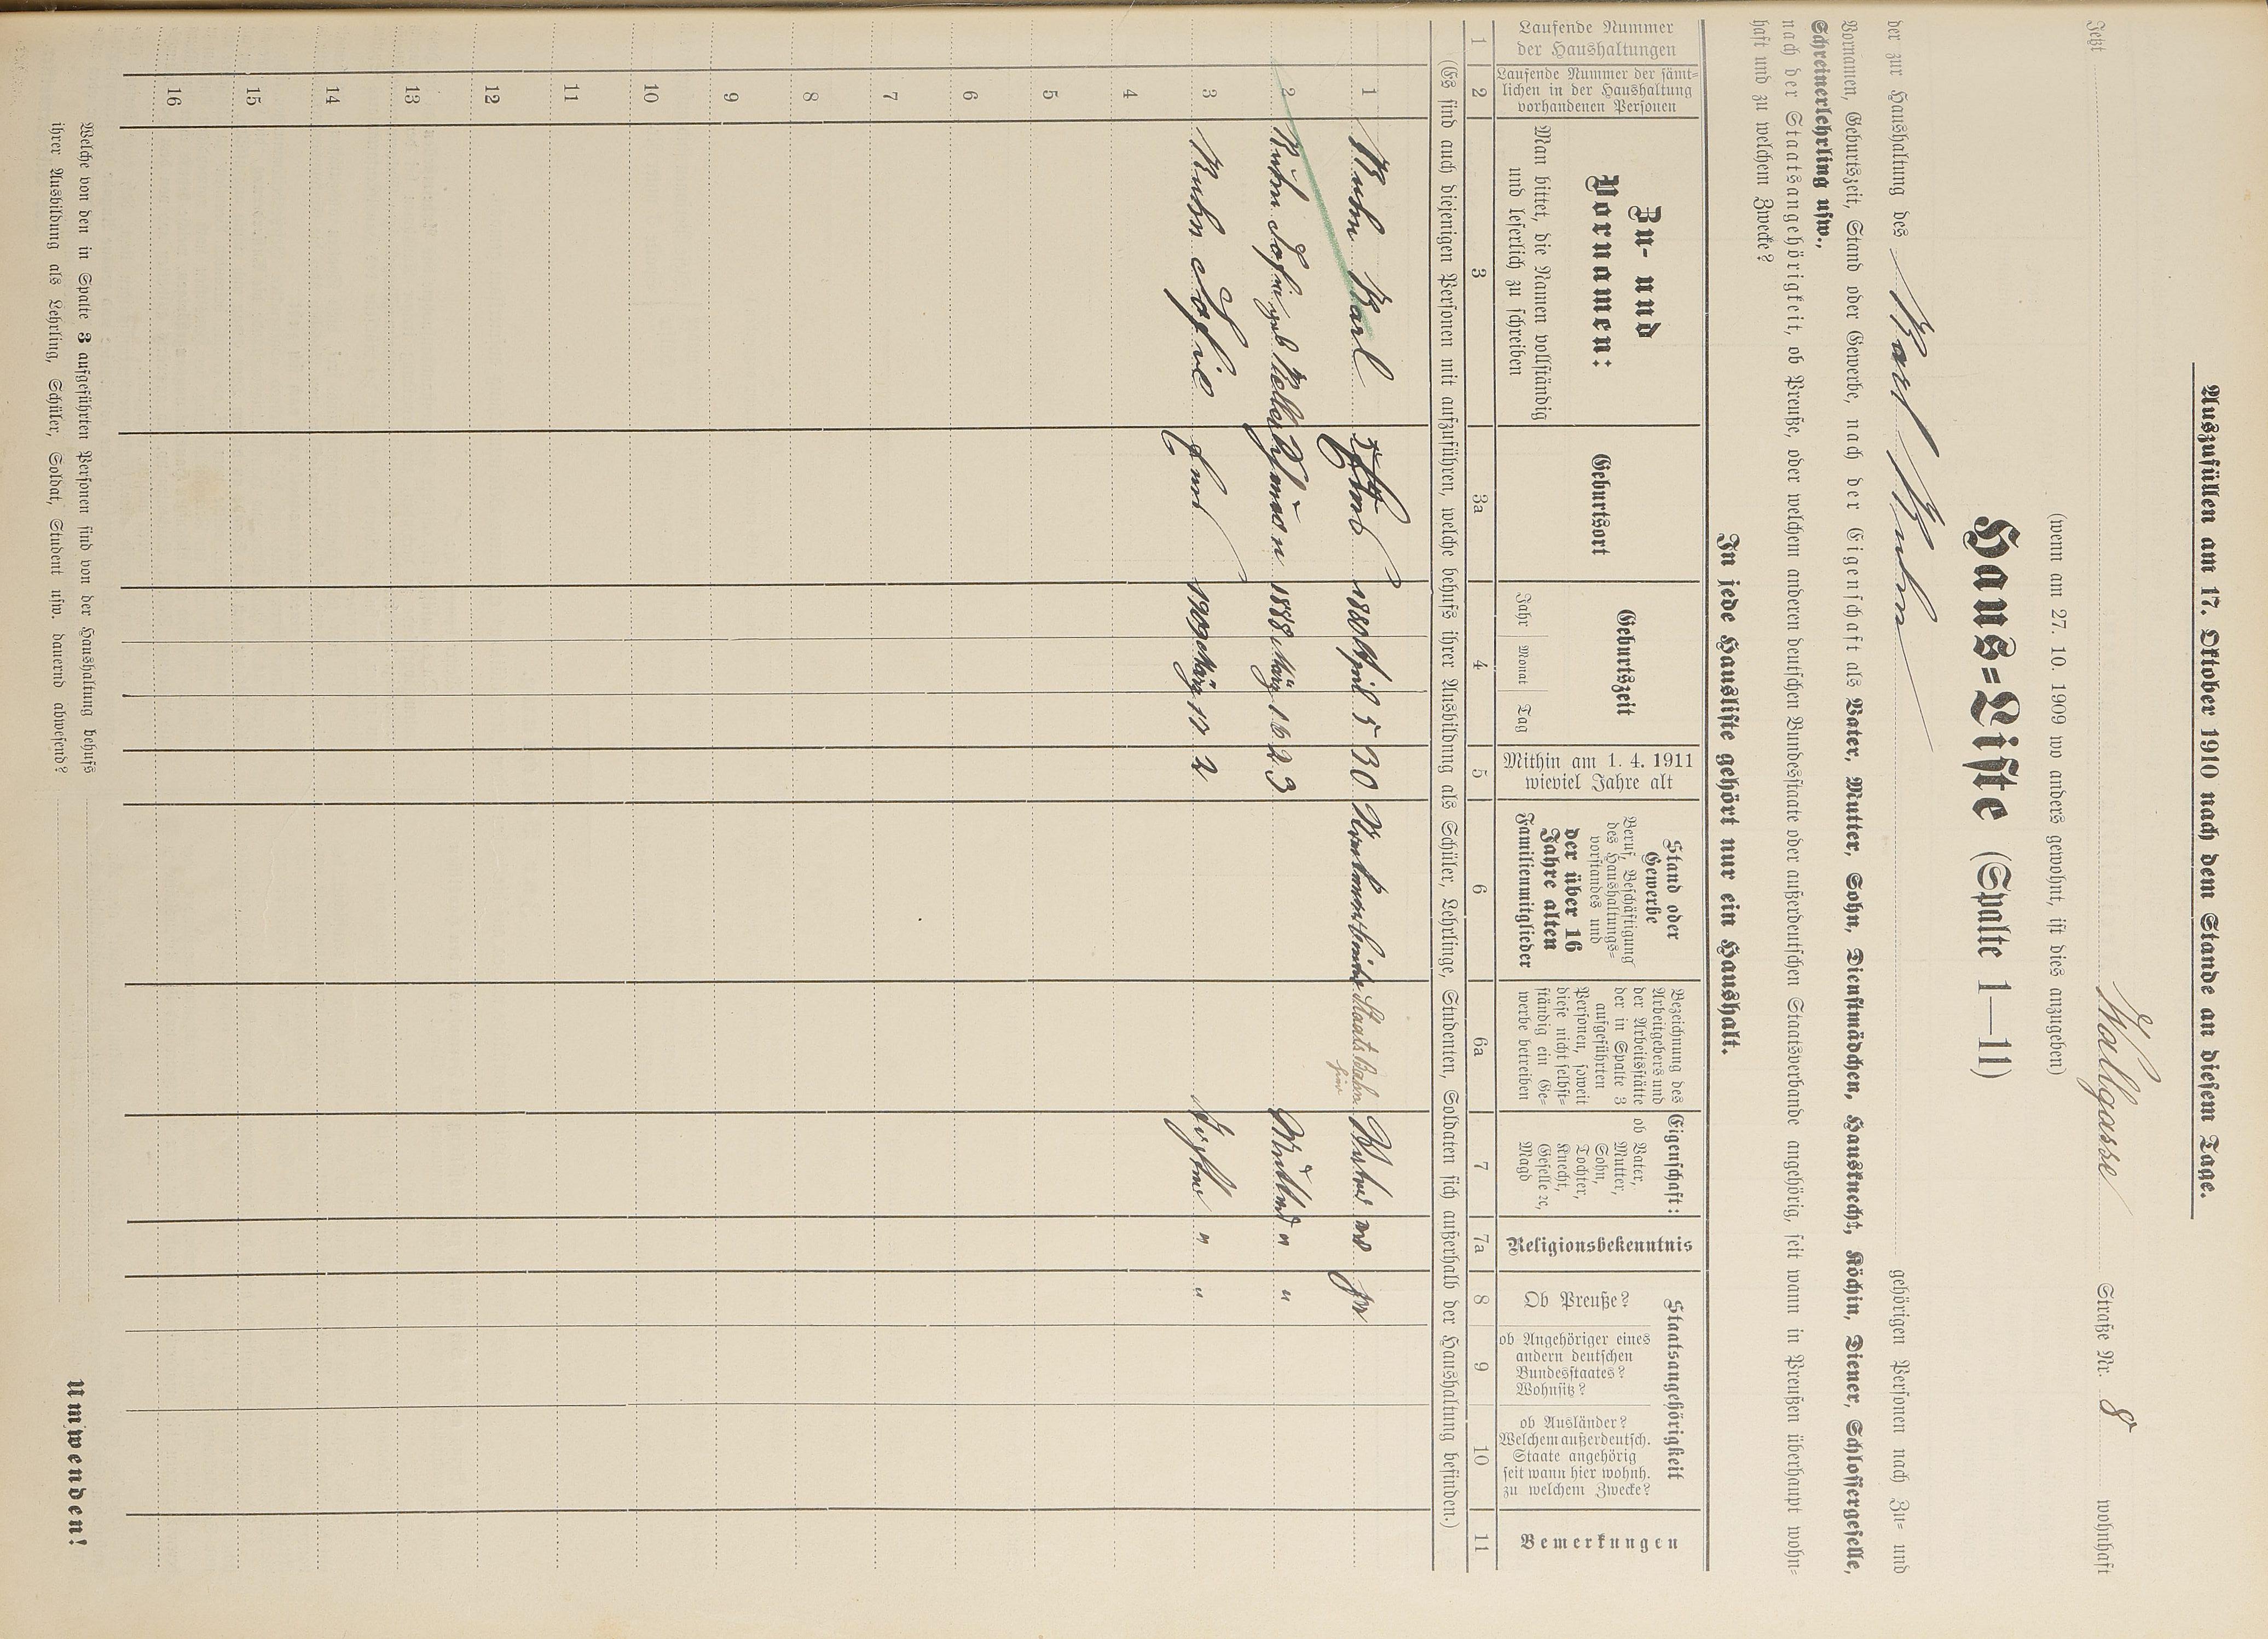 Auszufüllen am 17. Oktober 1910 nach dem Stande an diesem Tage.
Jetzt Wallgasse Straße Nr. 8 wohnhaft
(wenn am 27. 10. 1909 wo anders gewohnt, ist dies anzugeben)
Haus-Liste (Spalte 1—11)
der zur Haushaltung des Karl Kuhn gehörigen Personen nach Zu- und
Vornamen, Geburtszeit, Stand oder Gewerbe, nach der Eigenschaft als Vater, Mutter, Sohn, Dienstmädchen, Hausknecht, Köchin, Diener, Schlossergeselle,
Schreinerlehrling usw.,
nach der Staatsangehörigkeit, ob Preuße, oder welchem anderen deutschen Bundesstaate oder außerdeutschen Staatsverbande angehörig, seit wann in Preußen überhaupt wohn-
haft und zu welchem Zwecke?
In jede Hausliste gehört nur ein Haushalt.
Laufende Nummer
der Haushaltungen
Laufende Nummer der sämt-
lichen in der Haushaltung
vorhandenen Personen
Zu- und
Vornamen:
Man bittet, die Namen vollständig
und leserlich zu schreiben
Geburtsort
Geburtszeit
Jahr Monat Tag
Mithin am 1. 4. 1911
wieviel Jahre alt
Stand oder
Gewerbe
Beruf, Beschäftigung
des Haushaltungs-
vorstandes und
der über 16
Jahre alten
Familienmitglieder
Bezeichnung des
Arbeitgebers und
der Arbeitsstätte
der in Spalte 3
aufgeführten
Personen, soweit
diese nicht selbst-
ständig ein Ge-
werbe betreiben
Eigenschaft:
ob Vater,
Mutter,
Sohn,
Tochter,
Knecht,
Geselle ꝛc,
Magd
Religionsbekenntnis
Staatsangehörigkeit
Ob Preuße?
ob Angehöriger eines
andern deutschen
Bundesstaates?
Wohnsitz?
ob Ausländer?
Welchem außerdeutsch.
Staate angehörig
seit wann hier wohnh.
zu welchem Zwecke?
Bemerkungen
1 2 3 3a 4 5 6 6a 7 7a 8 9 10 11
(Es sind auch diejenigen Personen mit aufzuführen, welche behufs ihrer Ausbildung als Schüler, Lehrlinge, Studenten, Soldaten sich außerhalb der Haushaltung befinden.)
1 Kuhn Karl 1880 April 5 30 Staatsbahn hier Vater ev pr
2 Kuhn Sofie geb Keller 1888 März 16 23 Mutter " "
3 Kuhn Sofie 1909 März 2 Tochter " "
4
5
6
7
8
9
10
11
12
13
14
15
16
Welche von den in Spalte 3 aufgeführten Personen sind von der Haushaltung behufs
ihrer Ausbildung als Lehrling, Schüler, Soldat, Student usw. dauernd abwesend?
Umwenden!